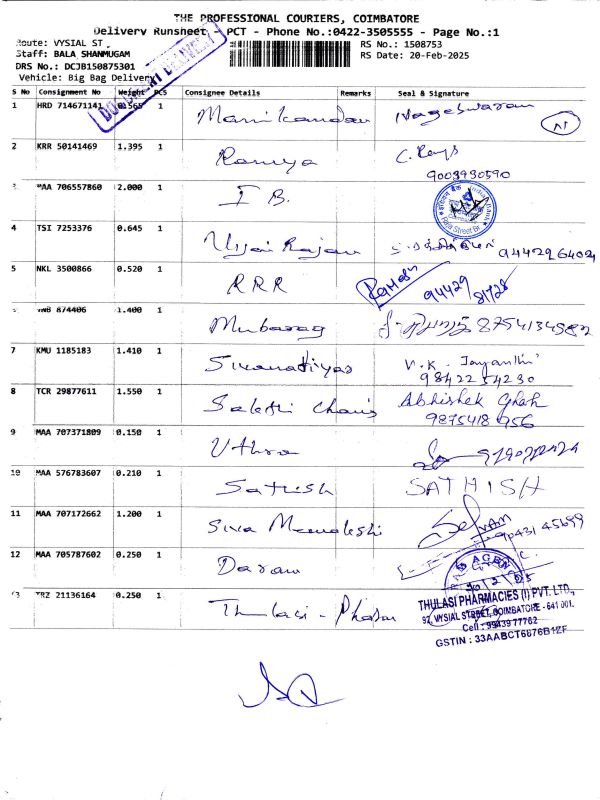 THE PROFESSIONAL COURIERS, COIMBATORE
Delivery Runsheet - PCT - Phone No.:0422-3505555 - Page No.:1
Route: VYSIAL ST
RS No.: 1508753
Staff: BALA SHANMUGAM
RS Date: 20-Feb-2025
DRS No.: DCJB150875301
Vehicle: Big Bag Delivery
S No Consignment No Weight PCS Consignee Details Remarks Seal & Signature
1 HRD 714671141 0.565 1 Manikandan Nageswaran
2 KRR 50141469 1.395 1 Ramya C. Ramya
9003930590
3 MAA 706557860 2.000 1 I B.
4 TSI 7253376 0.645 1 Vijai Rajan 9442964024
5 NKL 3500866 0.520 1 RRR Ramesh 94429
81728
VNB 874406 1.400 1 Mubarag 8754134982
7 KMU 1185183 1.410 1 V.K. Jayanthi
9842254230
8 TCR 29877611 1.550 1 Sakthi Chairs Abhishek Ghah
9875418956
9 MAA 707371809 0.150 1 Uthra
10 MAA 576783607 0.210 1 Sathish SATHISH
11 MAA 707172662 1.200 1 Siva Selvan
9043145699
12 MAA 705787602 0.250 1
13 TRZ 21136164 0.250 1 Thulasi - Pharma
THULASI PHARMACIES (I) PVT. LTD.,
92, VYSIAL STREET, COIMBATORE - 641 001.
Cell : 9943977762
GSTIN : 33AABCT6676B1ZF